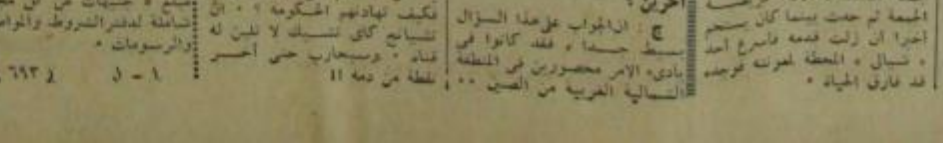 الجمعة ثم حدث بينما كان يستحم
اخيرا ان زلت قدمه فاسرع احد
« شيالى » المحطة لمعونته فوجده
قد فارق الحياة .
آخرين ؟
ج : ان الجواب على هذا السؤال
بسيط جدا ، فقد كانوا فى
بادىء الامر محصورين فى المنطقة
الشمالية الغربية من الصين ..
فكيف تهادنهم الحكومة ؟ . ان
تشيانج كاى تشيك لا تلين له
قناة . وسيحارب حتى آخر
نقطة من دمه !!
شاملة لدفتر الشروط والمواصفات
والرسومات .
١ - ١ ( ٦٩٣